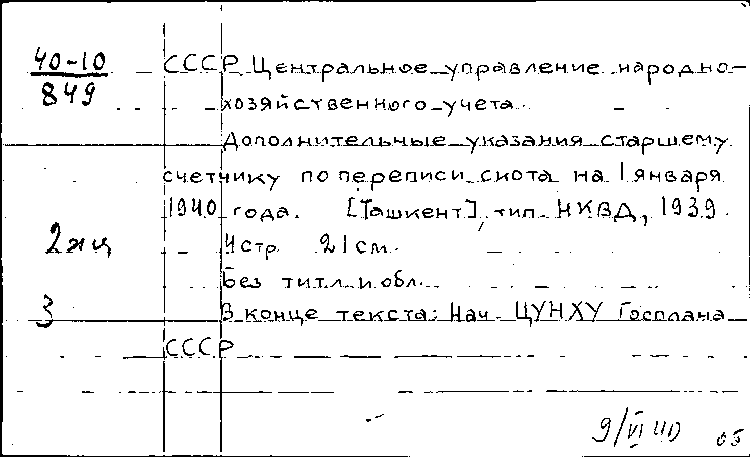 40-10
849
СССР Центральное управление народно-
хозяйственного учета.
Дополнительные указания старшему
счетчику по переписи скота на 1 января
1940 года. [Ташкент], тип. НКВД, 1939.
4 стр. 21 см.
Без тит. л. и обл.
В конце текста: Нач. ЦУНХУ Госплана
СССР
2жц
3
9/VI 40 об